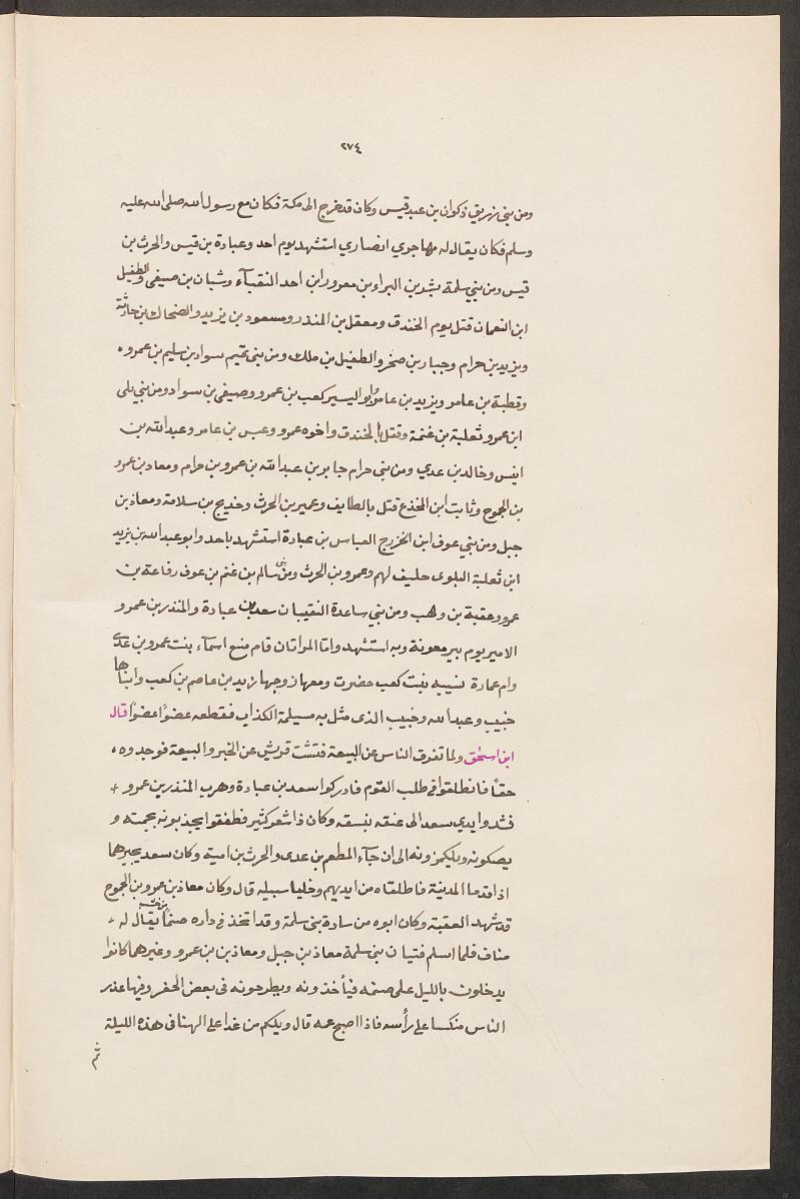 ٢٧٤
ومن بني زريق ذكوان بن عبد قيس وكان قد خرج الى مكة فكان مع رسول الله صلى الله عليه
وسلم فكان يقال له مهاجري انصاري استشهد يوم احد وعبادة بن قيس والحرث بن
قيس ومن بني سلمة بشر بن البراء بن معرور ابن احد النقبآء وسنان بن صيفي والطفيل
ابن النعمان قتل يوم الخندق ومعقل بن المنذر ومسعود بن يزيد والضحاك بن حارثة
ويزيد بن حرام وجبار بن صخر والطفيل بن ملك ومن بني تميم سواد بن سليم بن عمرو
وقطبة بن عامر ويزيد بن عامر وابو اليسير كعب بن عمرو وصيفي بن سواد ومن بني بلي
ابن عمرو ثعلبة بن غنمة وقتل بالخندق واخوه عمرو وعبس بن عامر وعبد الله بن
انيس وخالد بن عدي ومن بني حرام جابر بن عبد الله بن عمرو بن حرام ومعاذ بن عمرو
بن الجموح وثابت ابن الجذع قتل بالطايف وعمير بن الحرث وخديج بن سلامة ومعاذ بن
جبل ومن بني عوف ابن الخزرج العباس بن عبادة استشهد باحد وابو عبد الله بن يزيد
ابن ثعلبة البلوى حليف لهم وعمرو بن الحرث ومن بني سالم بن غنم بن عوف رفاعة بن
عمرو وعقبة بن وهب ومن بني ساعدة النقيبان سعد بن عبادة والمنذر بن عمرو
الامير يوم بير معونة وبه استشهد واما المراتان فام منيع اسمآء بنت عمرو بن عدى
وام عمارة نسيبه بنت كعب حضرت ومعها زوجها زيد بن عاصم بن كعب وابناها
خبيب وعبد الله وخبيب الذى مثل به مسيلمة الكذاب فقطعه عضوًا عضوًا قال
ابن اسحق ولما تفرق الناس عن البيعة فتشت قريش عن الخبر والبيعة فوجدوه
حقًا فانطلقوا في طلب القوم فادركوا سعد بن عبادة وهرب المنذر بن عمرو
فشدوا يدي سعد الى عنقه بنسقه وكان ذا شعر كثير فطفقوا يجذبونه بجمته و
يصكونه ويلكمزونه الى ان جآء المطعم بن عدى والحرث بن امية وكان سعد يجيرهما
اذا قدما المدينة فاطلقاه من ايديهم وخليا سبيله قال وكان معاذ بن عمرو بن الجموح
قد شهد العقبة وكان ابوه من سادة بني سلمة وقد اتخذ في داره صنمًا من خشبه يقال له
مناف فلما اسلم فتيان بني سلمة معاذ بن جبل ومعاذ بن بن عمرو وغيرهما كانوا
يدخلون بالليل على صنمه فيأخذونه ويطرحونه فى بعض الحفر وفيها عذر
الناس منكسا على رأسه فاذا اصبح عمه قال ويلكم من غدا على الهنا فى هذه الليلة
ثم